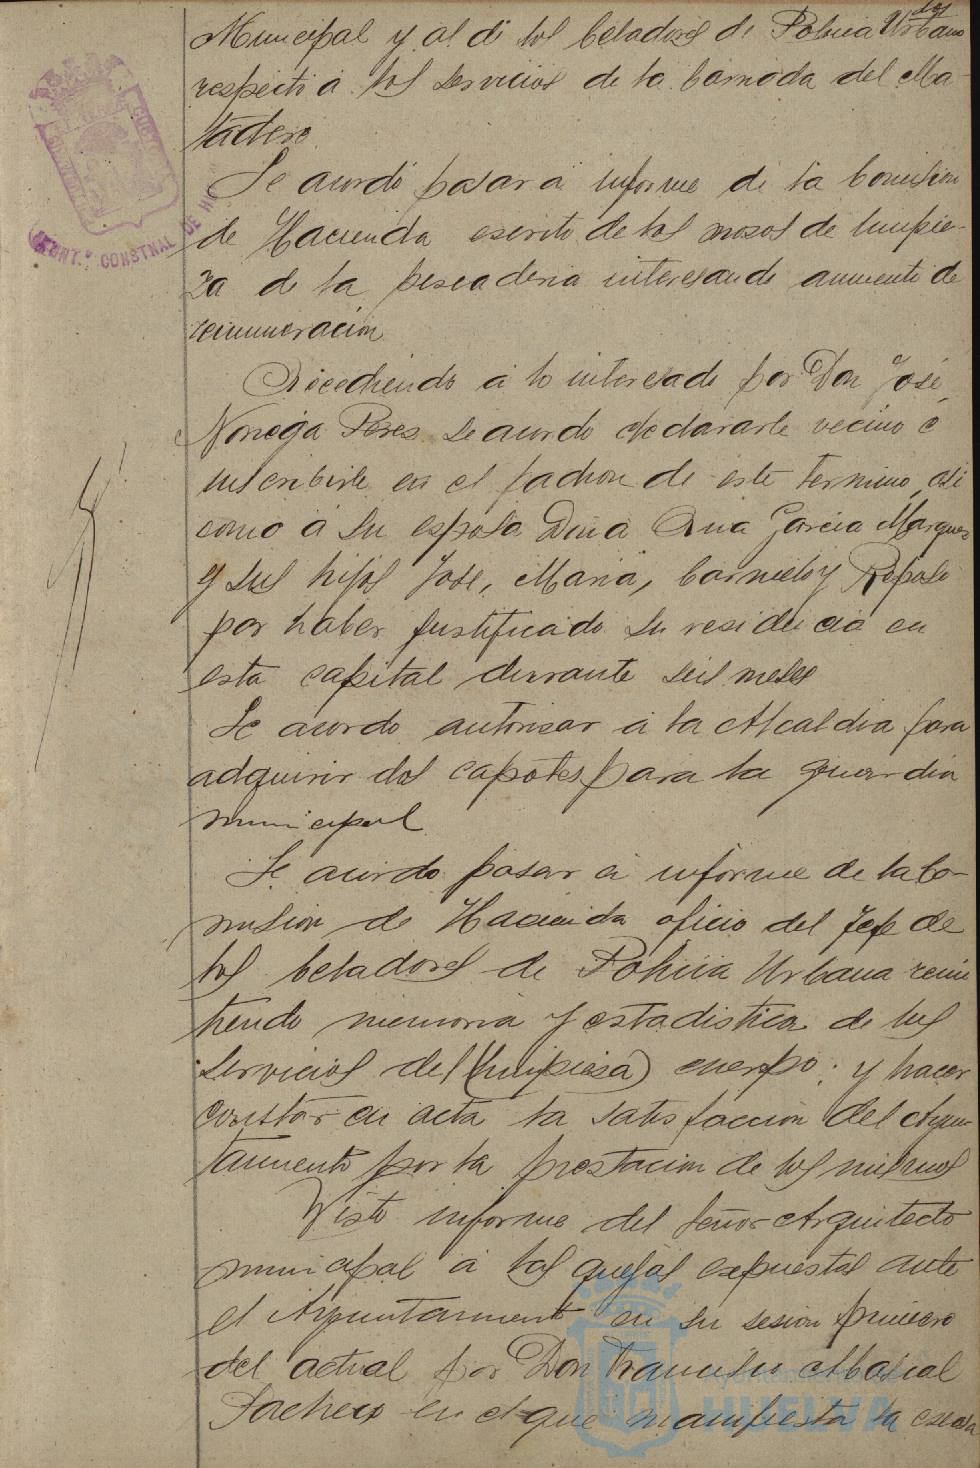 Municipal y al de los Celadores de Policia Urbana
respecto á los servicios de la barriada del Ma-
tadero.
Se acordó pasar á informe de la Comision
de Hacienda escrito de los mozos de limpie-
za de la pescaderia interesando aumento de
remuneracion
Accediendo á lo interesado por Don José
Noriega Peres se acordo declararle vecino é
inscribirle en el padron de este termino, asi
como á su esposa Doña Ana Garcia Marquez
y sus hijos Jose, Maria, Carmelo y
por haber justificado su residencia en
esta capital durante seis meses
Se acordo autorisar á la Alcaldia para
adquirir dos capotes para la guardia
municipal
Se acordo pasar á informe de la Co-
mision de Hacienda oficio del Jefe de
los Celadores de Policia Urbana remi
tiendo memoria y estadistica de los
servicios del (limpiesa) cuerpo; y hacer
constar en acta la satisfaccion del Ayun-
tamiento por la prestacion de los mismos
Visto informe del Señor Arquitecto
municipal á las quejas expuestas ante
el Ayuntamiento en su sesion primero
del actual por Don Francisco Mascal
Pacheco en el que manifiesta la escasa
AYUNT.º CONSTNAL DE H
HUELVA